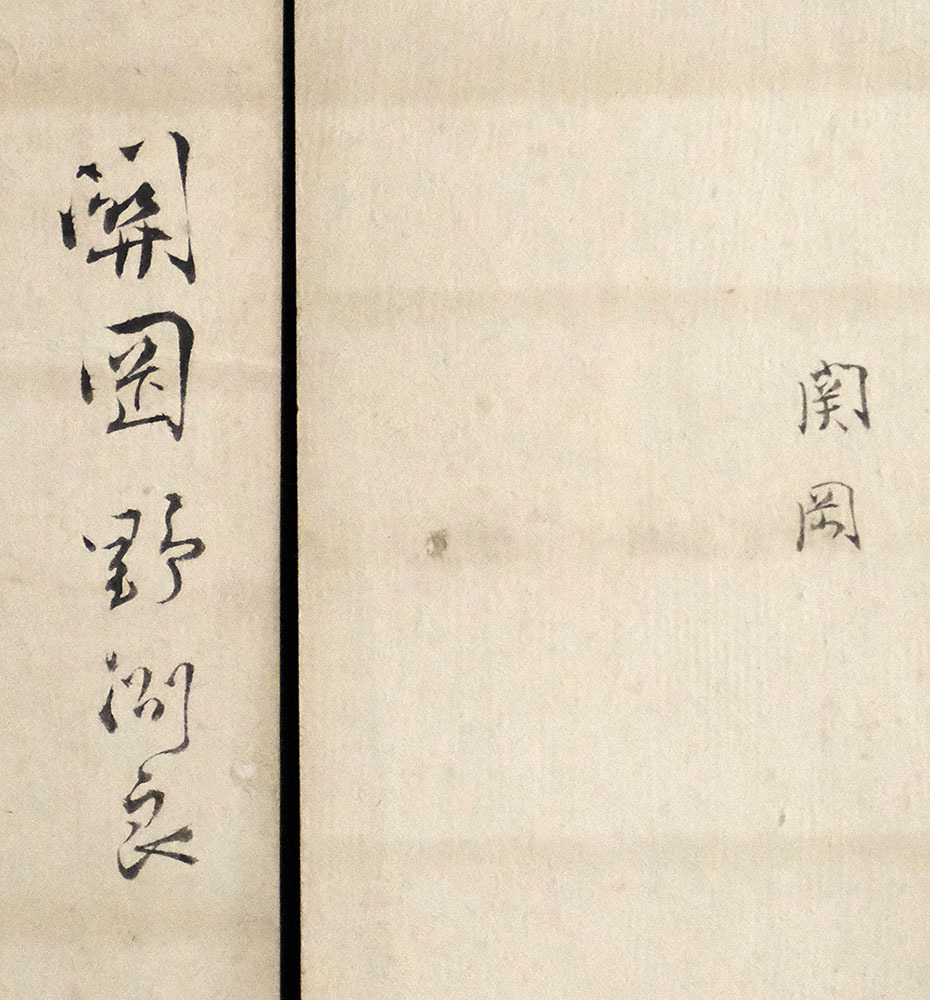 関岡
關岡野洲良